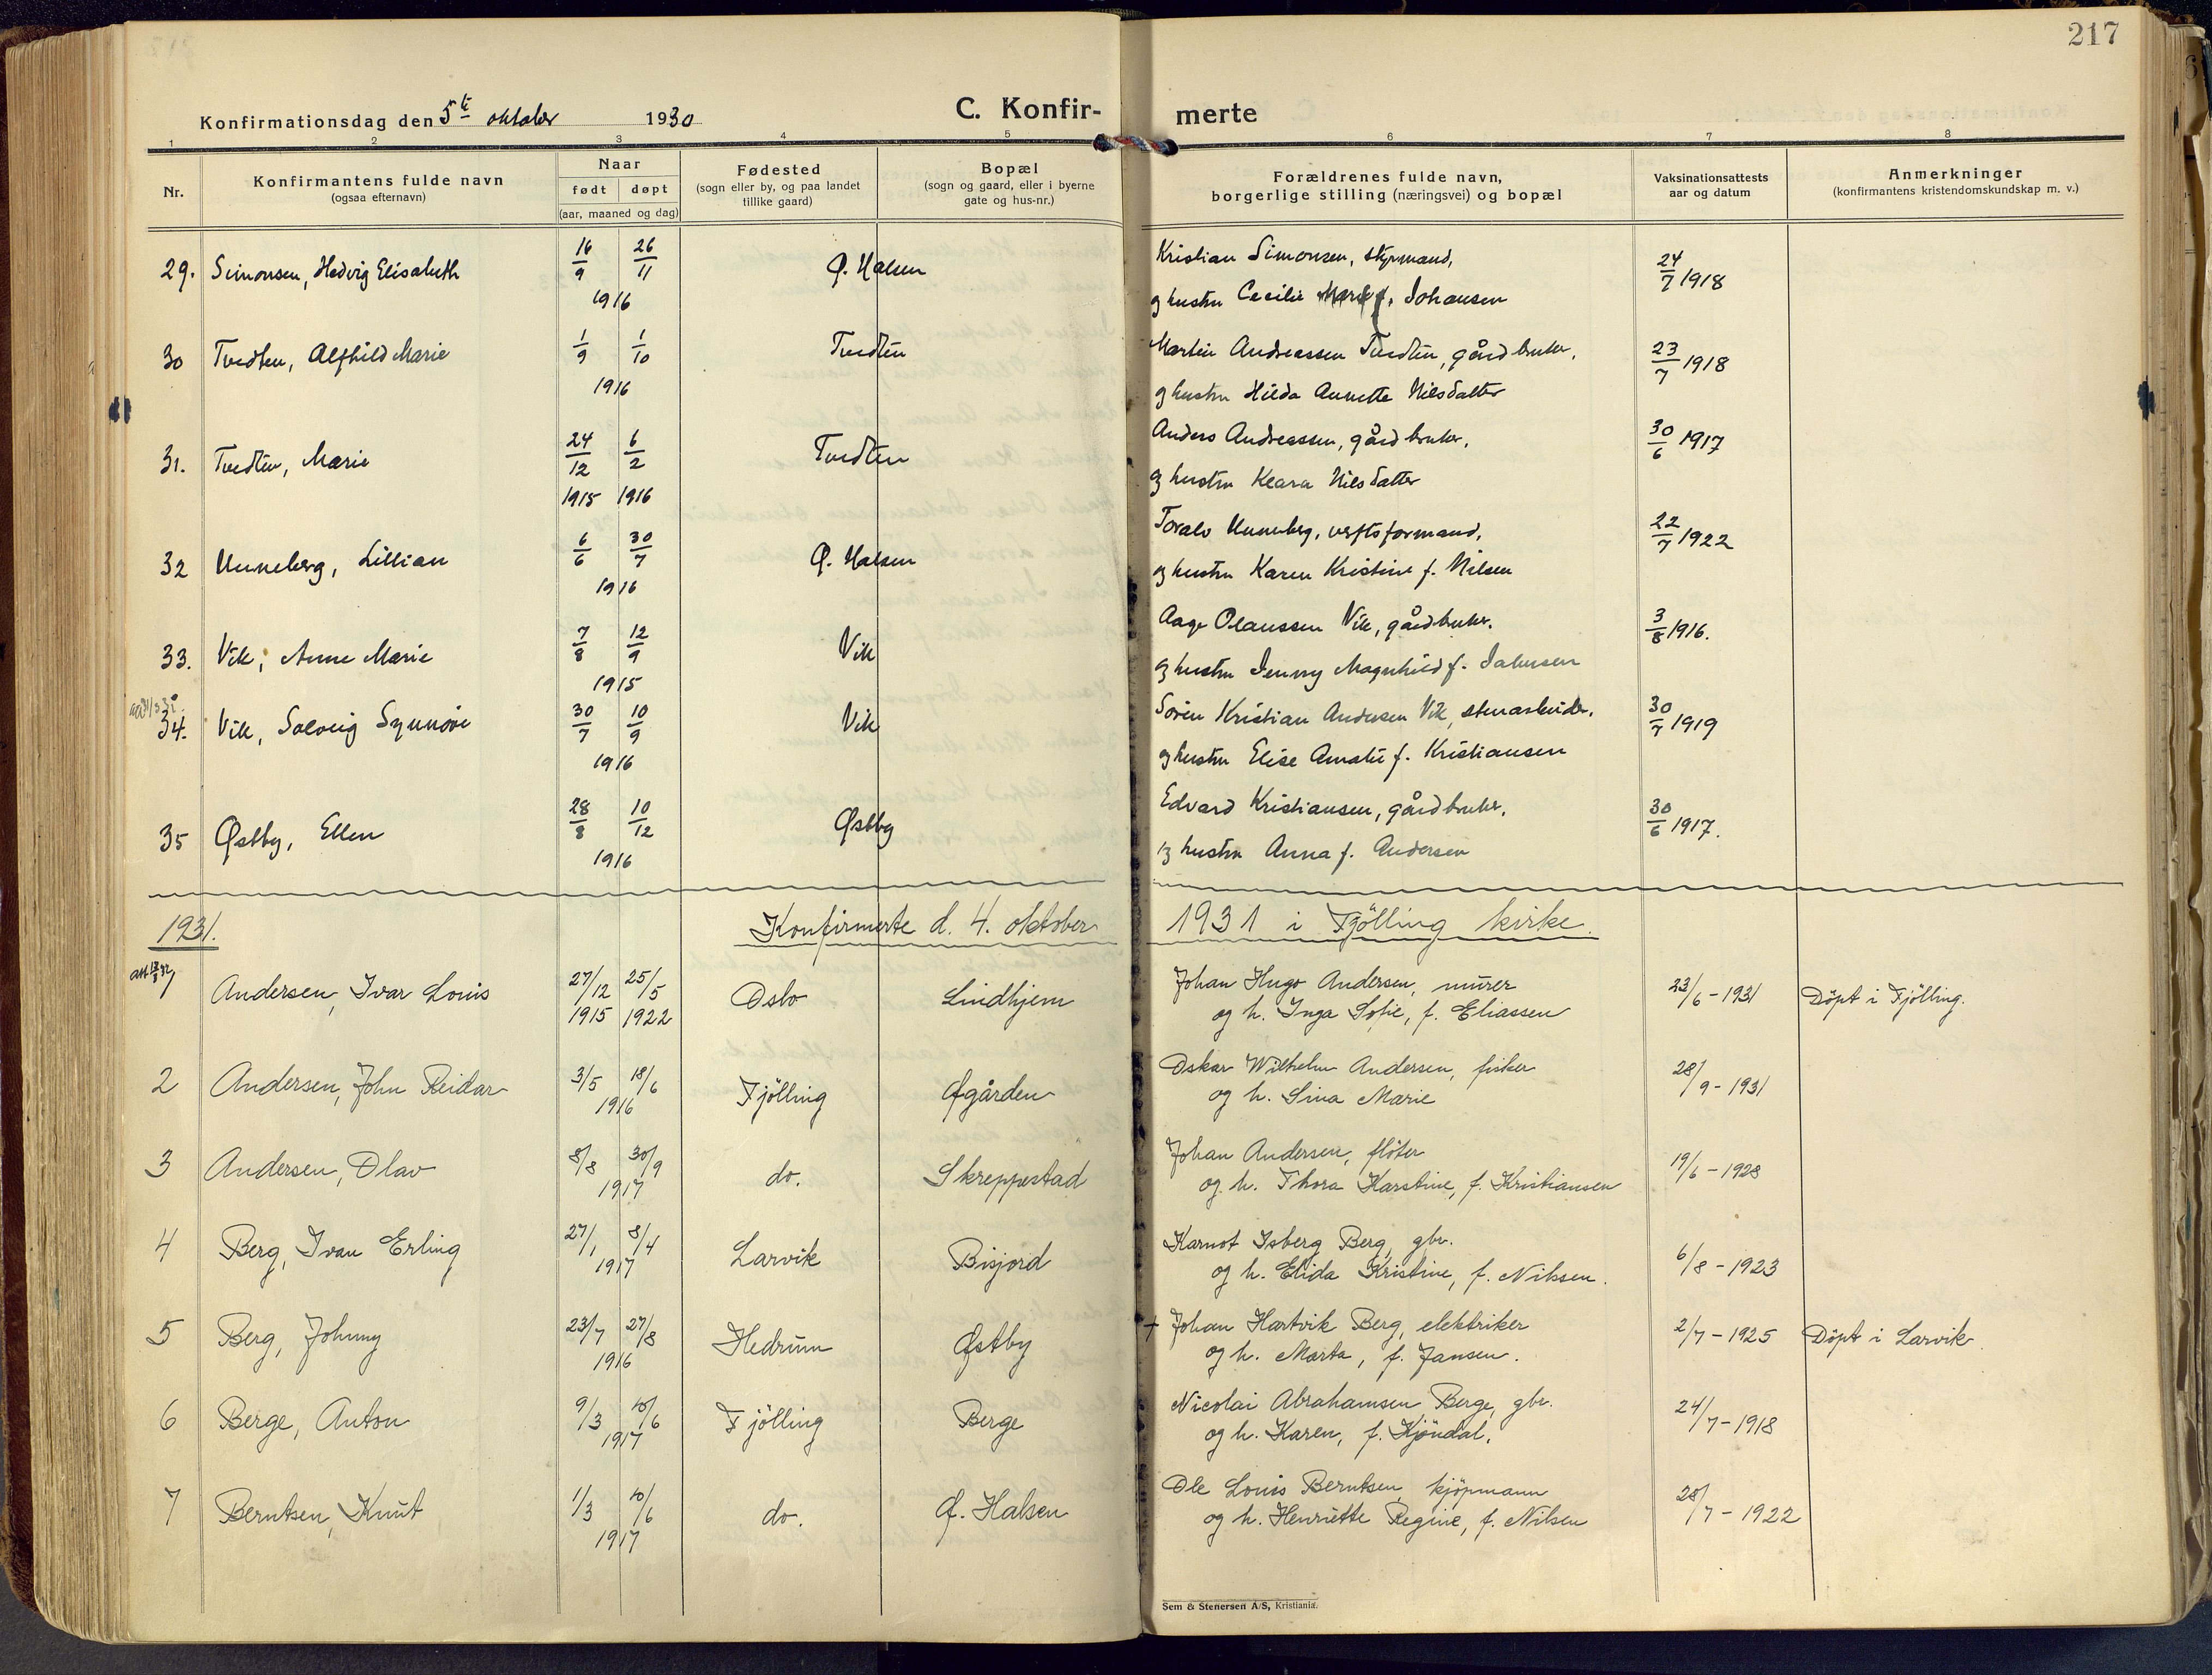 217
Konfirmationsdag den 5te oktober 1930
C. Konfir-merte
1 2 3 4 5 6 7 8
Nr.
Konfirmantens fulde navn
(ogsaa efternavn)
Naar
født døpt
(aar, maaned og dag)
Fødested
(sogn eller by, og paa landet
tillike gaard)
Bopæl
(sogn og gaard, eller i byerne
gate og hus-nr.)
Forældrenes fulde navn,
borgerlige stilling (næringsvei) og bopæl
Vaksinationsattests
aar og datum
Anmerkninger
(konfirmantens kristendomskundskap m. v.)
29. Simonsen, Hedvig Elisabeth 16/9 26/11 1916 Ø. Halsen Kristian Simonsen, styrmand, 24/7 1918
og hustru Cecilie f. Johansen
30 Tvedten, Alfhild Marie 1/9 1/10 1916 Tvedten Martin Andreassen Tvedten, gårdbruker, 23/7 1918
og hustru Hilda Annette Nilsdatter
31. Tvedten, Marie 24/12 1915 6/2 1916 Tvedten Anders Andreassen, gårdbruker, 30/6 1917
og hustru Klara Nilsdatter
32 Unneberg, Lillian 6/6 30/7 1916 Ø. Halsen Toralv Unneberg, verftsformand, 22/7 1922
og hustru Karen Kristine f. Nilsen
33. Vik, Anne Marie 7/8 12/9 1915 Vik Aage Olaussen Vik, gårdbruker. 3/8 1916.
og hustru Jenny Magnhild f. Jahnsen
34. Vik, Solveig Synnøve 30/7 10/9 1916 Vik Søren Kristian Andersen Vik, stenarbeider. 30/7 1919
og hustru Elise Amalie f. Kristiansen
35 Østby, Ellen 28/8 10/12 1916 Østby Edvard Kristiansen, gårdbruker, 30/6 1917.
og hustru Anna f. Andersen
1931. Konfirmerte d. 4. oktober 1931 i Tjölling kirke.
1 Andersen, Ivar Louis 27/12 1915 25/5 1922 Oslo Lindhjem Johan Hugo Andersen, murer 23/6 - 1931 Döpt i Tjölling.
og h. Inga Sofie, f. Eliassen
2 Andersen, John Reidar 3/5 18/6 1916 Tjölling Øgården Oskar Wilhelm Andersen, fisker 28/9 - 1931
og h. Lina Marie
3 Andersen, Olav 8/8 30/9 1917 do. Skreppestad Johan Andersen, fløter 19/6 - 1928
og h. Thora Karstine, f. Kristiansen
4 Berg, Ivan Erling 27/1 8/4 1917 Larvik Bisjord Karnot Isberg Berg, gbr. 6/8 - 1923
og h. Elida Kristine, f. Nilssen.
5 Berg, Johnny 23/7 27/8 1916 Hedrum Østby + Johan Hartvik Berg, elektriker 2/7 - 1925 Döpt i Larvik.
og h. Marta, f. Jansen.
6 Berge, Anton 9/3 10/6 1917 Tjölling Berge Nicolai Abrahamsen Berge, gbr. 24/7 - 1918
og h. Karen, f. Kjöndal.
7 Berntsen, Knut 1/3 10/6 1917 do. Ø. Halsen Ole Louis Berntsen, kjöpmann 28/7 - 1922
og h. Henriette Regine, f. Nilsen
Sem & Stenersen A/S, Kristiania.